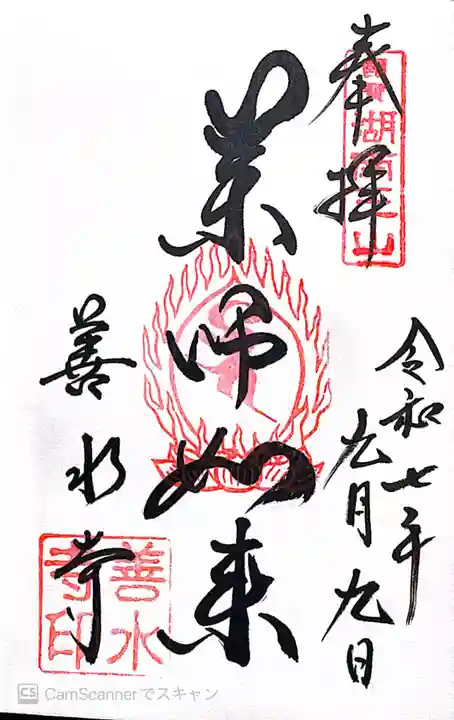 奉拝
湖南三山
令和七年
九月九日
薬師如来
善水寺
善水
寺印
CS CamScannerでスキャン